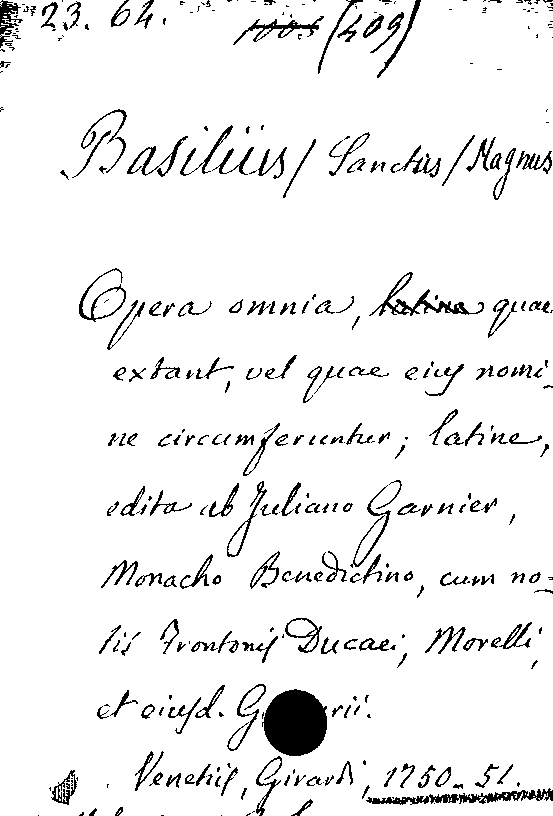 23. 64. 1005 (409)
Basilius / Sanctus / Magnus
Opera omnia, latina quae
extant, vel quae eius nomi-
ne circumferuntur; latine,
edita ab Juliano Garnier,
Monacho Benedictino, cum no-
tis Frontonis Ducaei, Morelli,
et eiusd. G rii.
Venetiis, Girardi, 1750-51.